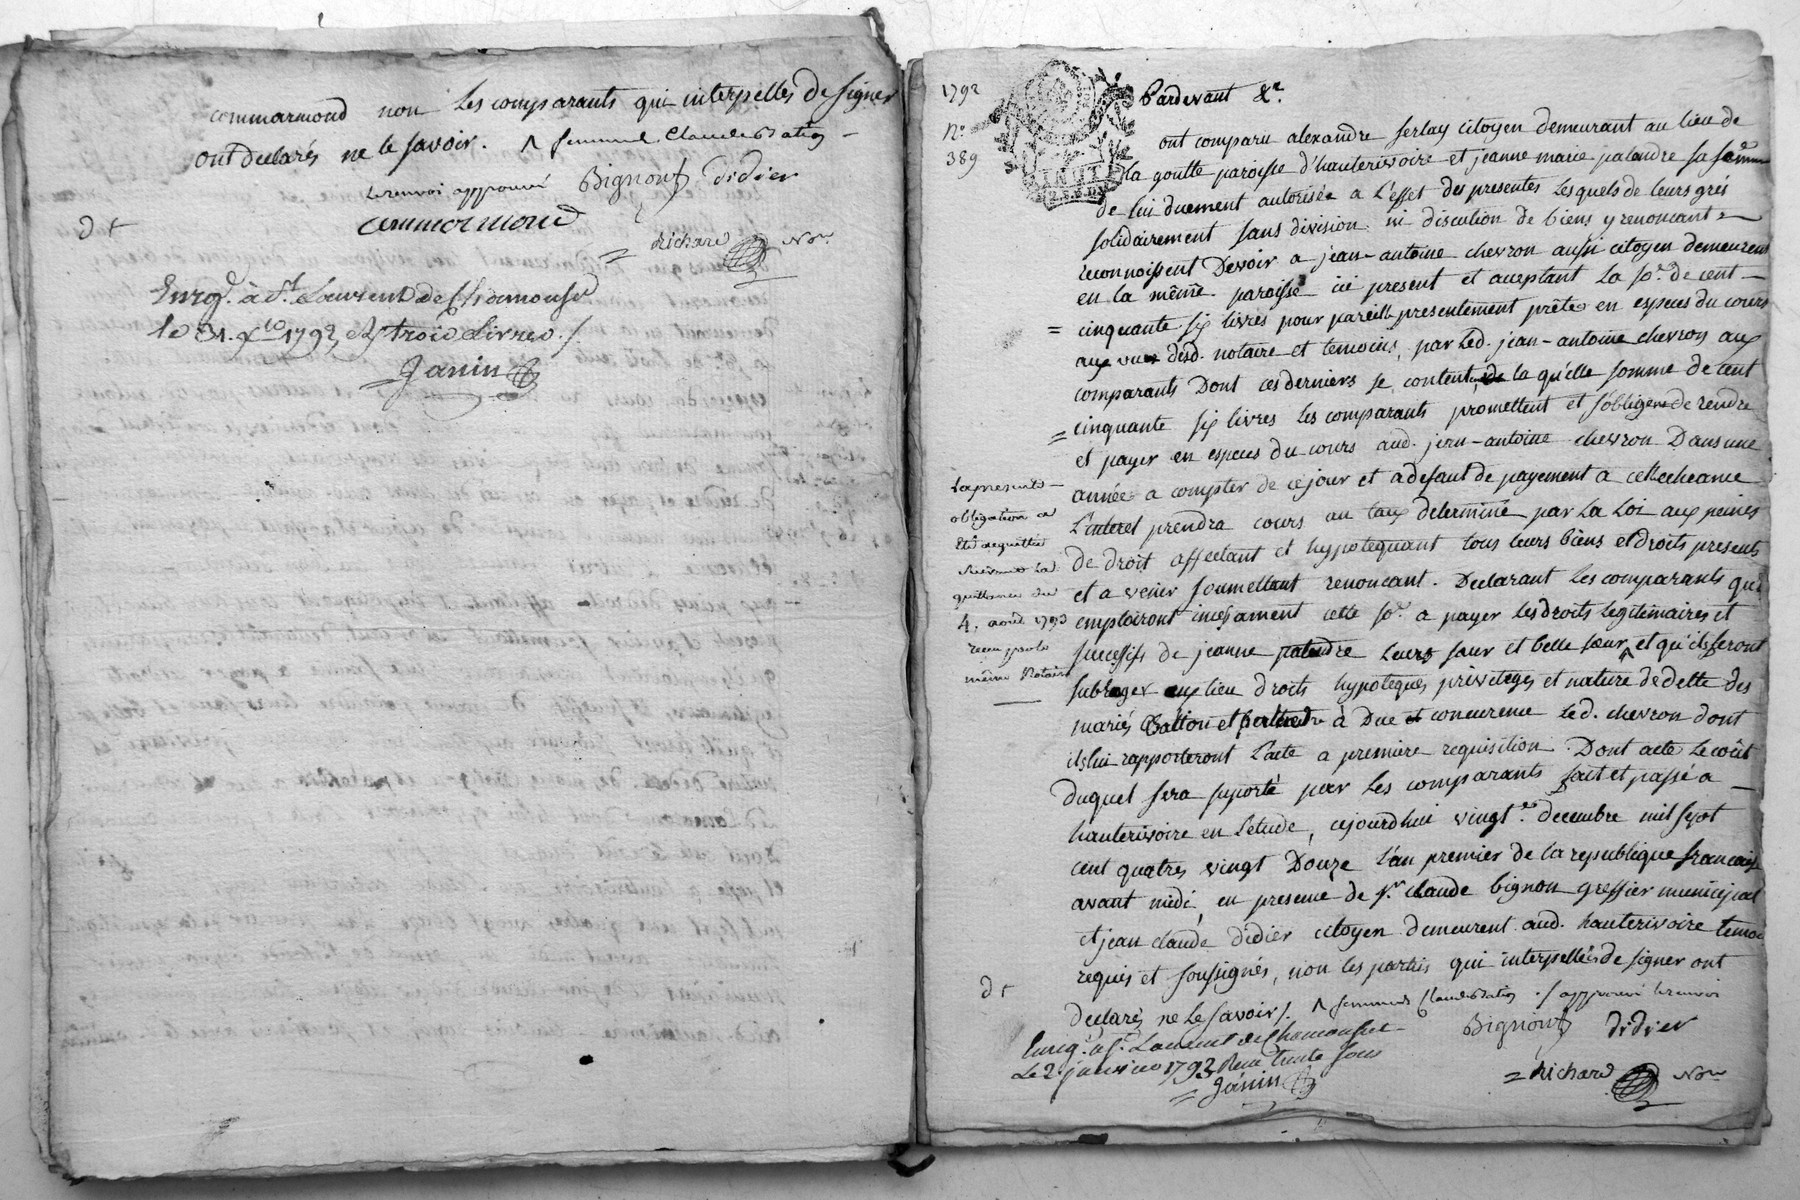 commarmond non les comparants qui interpellés de signer
ont declarés ne le savoir. ^ femme Claude Batton
le renvoi approuvé Bignon didier
commarmond
dt
Richard Nore
Enregé. à St. Laurent de Chamousset
le 31. Xbre 1792, reçu trois Livres ./.
Janin
1792
No.
389
Pardevant &c.
ont comparu alexandre ferlay citoyen demeurant au lieu de
la goutte paroisse d'hauterivoire et jeanne marie palandre sa femme
de lui duement autorisée a l'effet des presentes lesquels de leurs grés
solidairement sans division ni discution de biens y renoncant
reconnoissent devoir a jean-antoine chevron aussi citoyen demeurent
en la même paroisse ici present et aceptant la so.e de cent
cinquante six livres pour pareille presentement prêté en especes du cours
aux vues desd. notaire et temoins, par led. jean-antoine chevron aux
comparants dont ces derniers se contentent de la qu'elle somme de cent
cinquante six livres les comparants promettent et s'obligent de rendre
et payer en especes du cours aud. jean-antoine chevron dans une
année a compter de ce jour et a defaut de payement a cette echeance
l'interet prendra cours au taux determiné par la loi aux peines
de droit affectant et hypotequant tous leurs biens et droits presents
et a venir soumettant renoncant. Declarant les comparants qu'il
emploiront incessament cette so.e a payer les droits legitimaires et
successifs de jeanne palandre leurs sœur et belle sœur ^ et qu'ils feront
subroger aux lieu droits hypoteques privileges et nature de dette des
mariés Batton et palandre à due et concurence led. chevron dont
ils lui rapporteront l'acte a premiere requisition. Dont acte le coût
duquel sera suporté par les comparants fait et passé a
hauterivoire en l'etude, cejourdhui vingt decembre mil sept
cent quatres vingt douze l'an premier de la republique francaise
avant midi, en presence de sr. claude bignon greffier municipal
et jean claude didier citoyen demeurent aud. hauterivoire temoins
requis et soussignés, non les parties qui interpellées de signer ont
declarés ne le savoir ./. ^ femme de Claude Batton ./. approuvé le renvoi
Bignon didier
Richard Nore
dt
Enregé. a St. Laurent de Chamousset
Le 2. janvier 1793 Reçu trente sous
Janin
la presente
obligation a
été acquittée
suivant la
quittance du
4. aout 1793
reçu par le
même Notaire